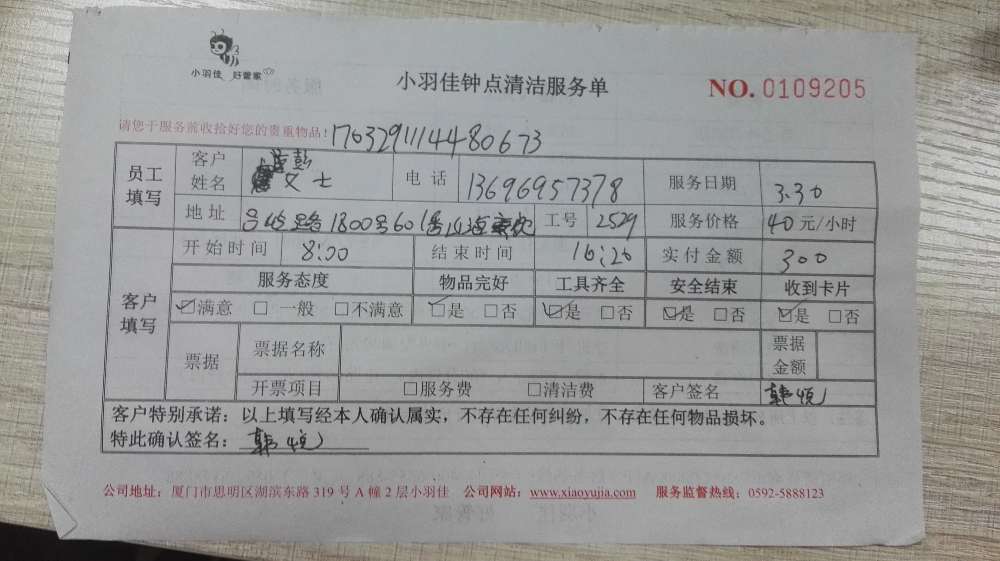 小羽佳 好管家
小羽佳钟点清洁服务单
NO. 0109205
请您于服务前收拾好您的贵重物品！
17032911144480673
员工填写
客户姓名 彭女士 电话 13696957378 服务日期 3.30
地址 吕岭路1800号601 工号 2529 服务价格 40元/小时
客户填写
开始时间 8:00 结束时间 16:20 实付金额 300
服务态度 物品完好 工具齐全 安全结束 收到卡片
☑满意 □一般 □不满意 ☑是 □否 ☑是 □否 ☑是 □否 ☑是 □否
票据 票据名称 票据金额
开票项目 □服务费 □清洁费 客户签名 韩悦
客户特别承诺：以上填写经本人确认属实，不存在任何纠纷，不存在任何物品损坏。
特此确认签名：韩悦
公司地址：厦门市思明区湖滨东路 319 号 A 幢 2 层小羽佳 公司网站：www.xiaoyujia.com 服务监督热线：0592-5888123